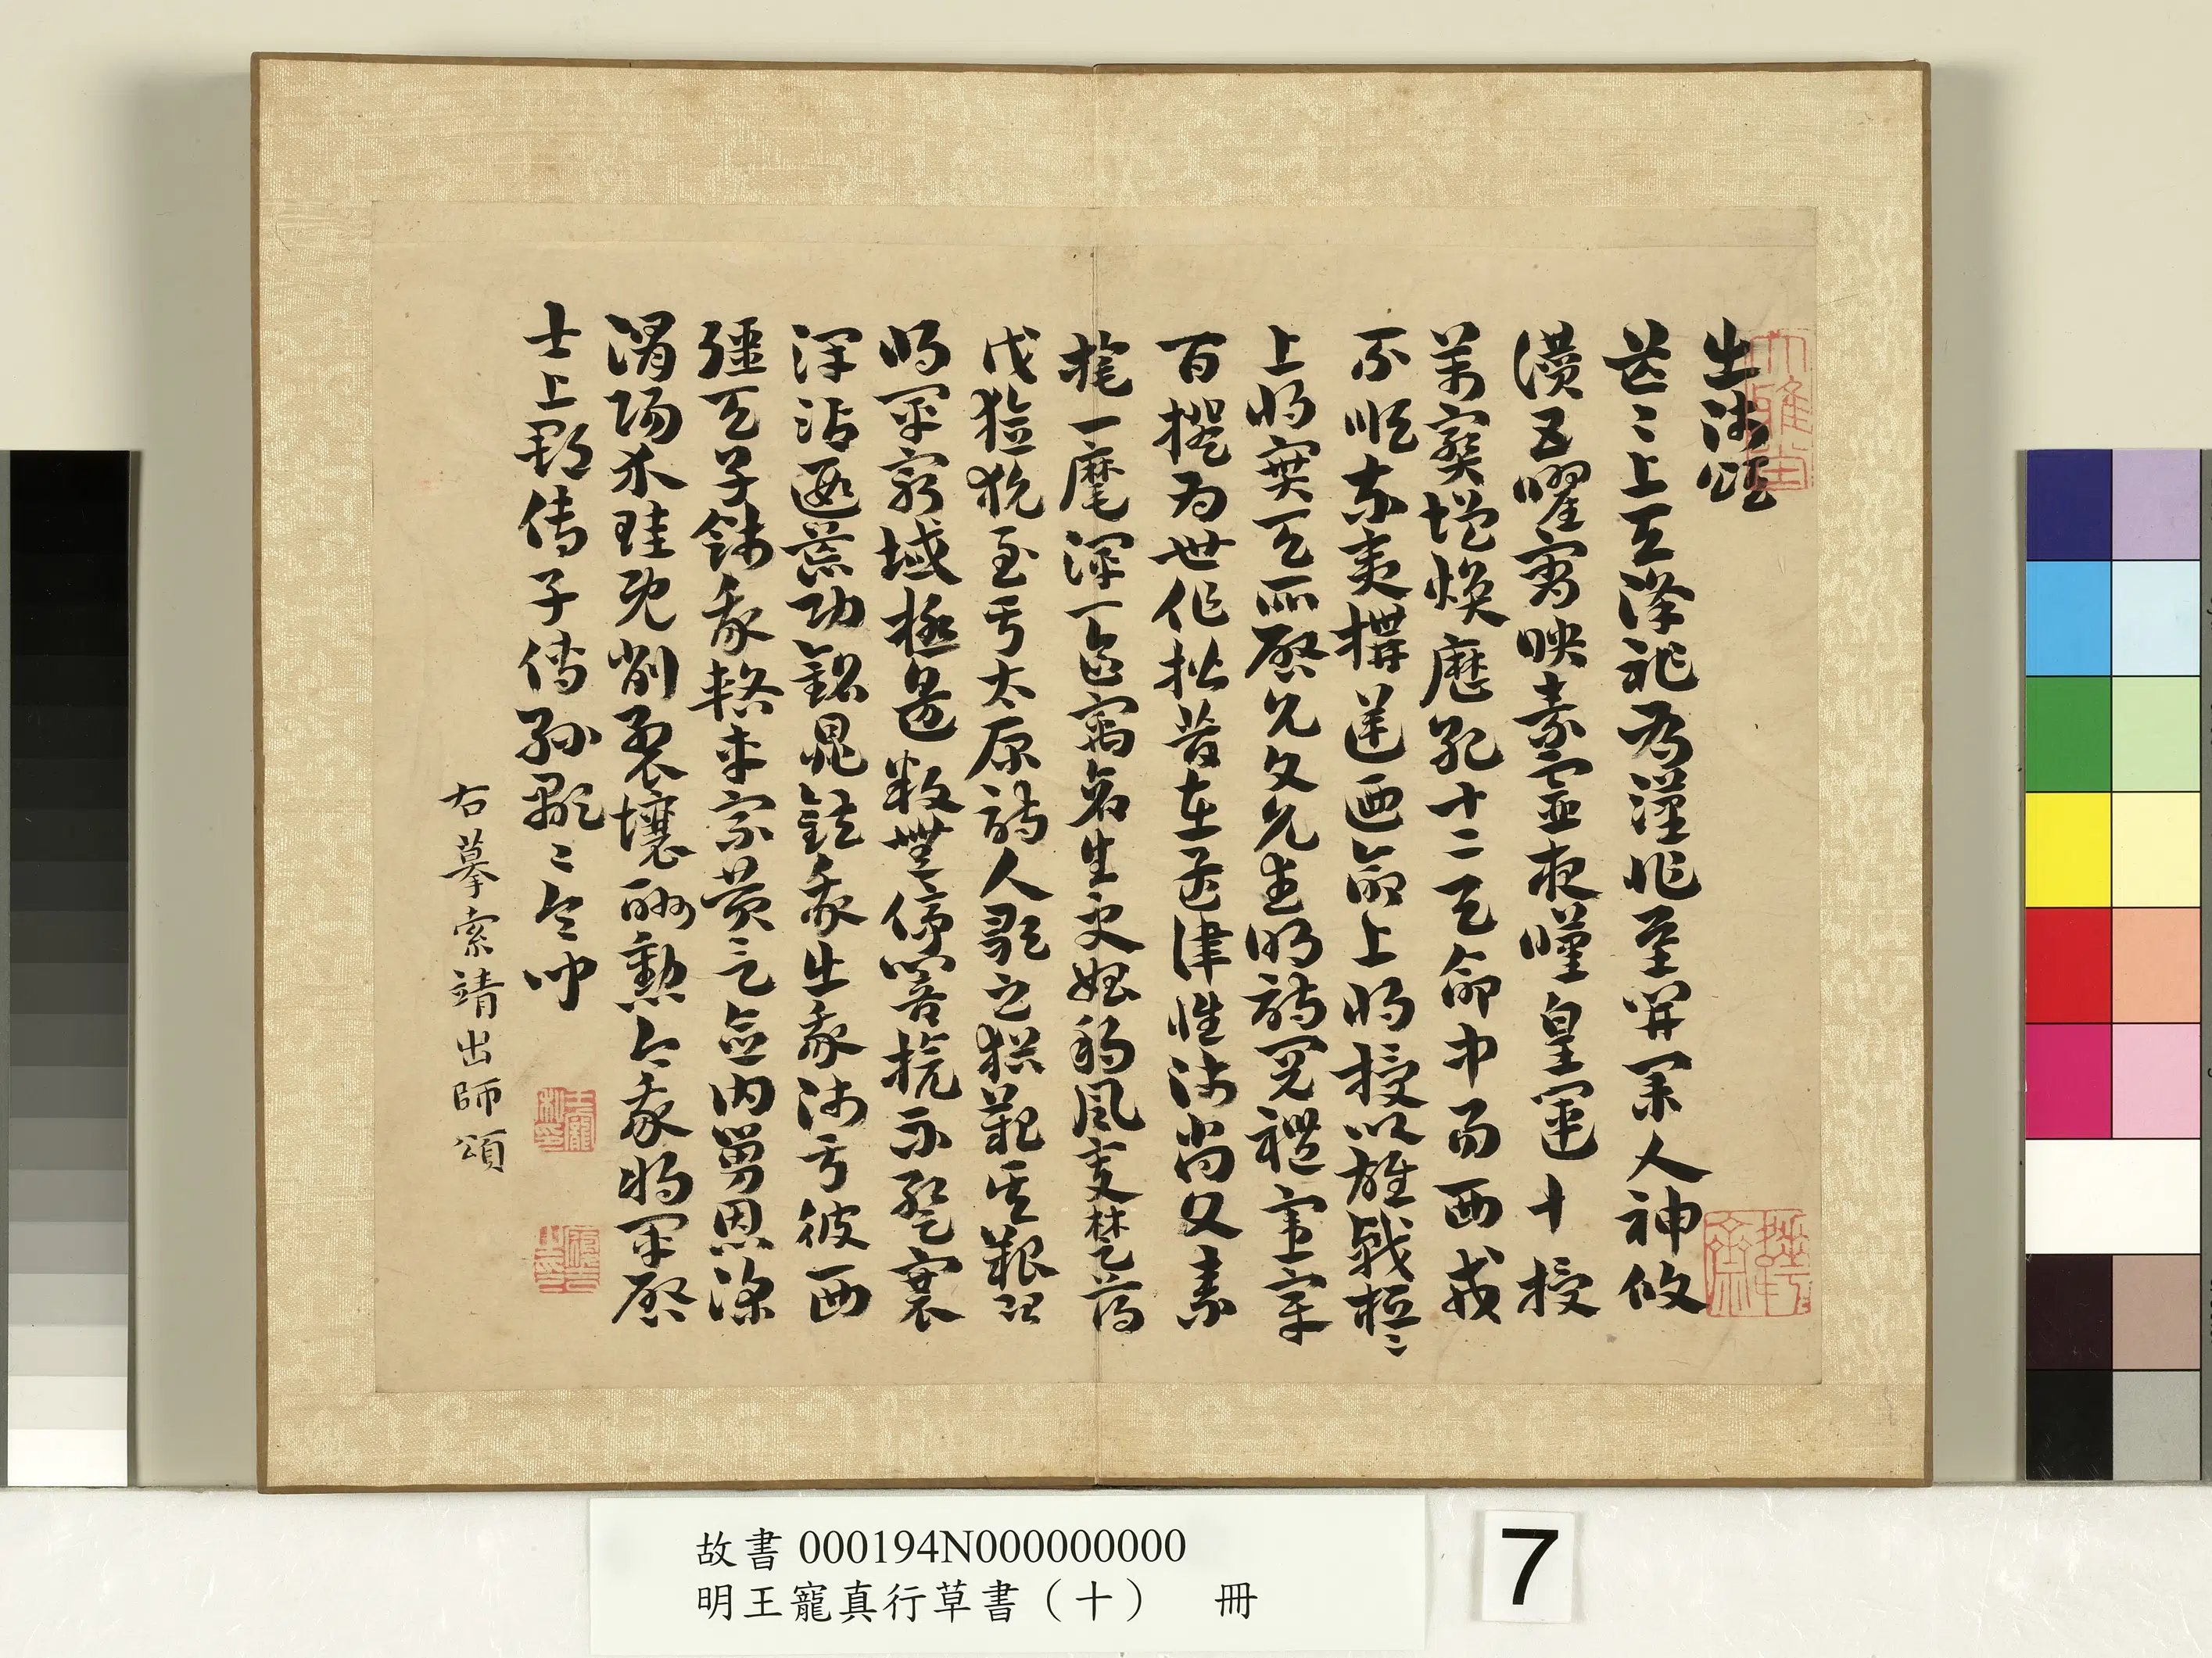 出師頌
茫〻上天降祚為漢作基開業人神攸
讚五曜宵映素靈夜嘆皇運十授
萬寶增煥歷紀十二天命中易西戎
不順東夷構逆迺命上將授以雄戟桓〻
上將寔天所啓允文允武明詩閱禮憲章
百揆為世作楷昔在孟津惟師尚父素
旄一麾渾一區寓蒼生更始朔風變楚薄
伐獫狁至于太原詩人歌之猶歎其艱況
將軍窮域極邊鼓無停響旗不蹔褰
澤沾遐荒功銘鼎鉉我出我師于彼西
疆天子餞我輅車乘黃言念伯舅恩深
渭陽介珪既削裂壤酬勳今我將軍啓
士上郡傳子傳孫顯〻令問
右摹索靖出師頌
大雅堂
王履吉印
故書 000194N000000000
明王寵真行草書（十） 冊
7